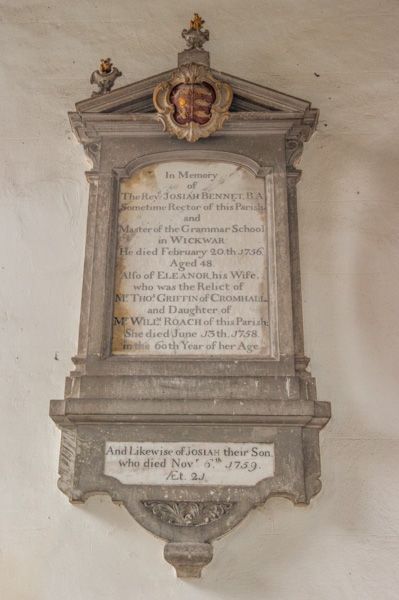 In Memory
of
The Revd. JOSIAH BENNET, B.A.
Sometime Rector of this Parish,
and
Master of the Grammar School
in WICKWAR.
He died February 20th. 1756.
Aged 48.
Also of ELEANOR, his Wife,
who was the Relict of
Mr. Thos. GRIFFIN of CROMHALL,
and Daughter of
Mr. Willm. ROACH of this Parish;
She died June 13th. 1758.
in the 60th Year of her Age.
And Likewise of JOSIAH their Son,
who died Novr. 6th. 1759.
Æt. 21.